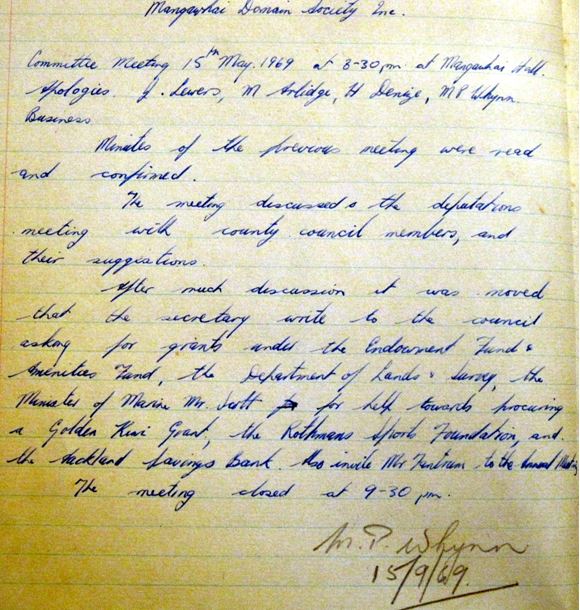 Mangawhai Domain Society Inc.
Committee Meeting 15th May. 1969 at 8-30 pm at Mangawhai Hall.
Apologies. J. Lewers, M Arlidge, H Denize, M P Whynn.
Business.
Minutes of the previous meeting were read
and confirmed.
The meeting discussed the deputations
meeting with county council members, and
their suggestions.
After much discussion it was moved
that the secretary write to the council
asking for grants under the Endowment Fund &
Amenities Fund, the Department of Lands & Survey, the
Minister of Marine Mr. Scott for help towards procuring
a Golden Kiwi Grant, the Rothmans Sports Foundation, and
the Auckland Savings Bank. Also invite Mr to the Annual Meeting
The meeting closed at 9-30 pm.
M. P. Whynn
15/9/69.